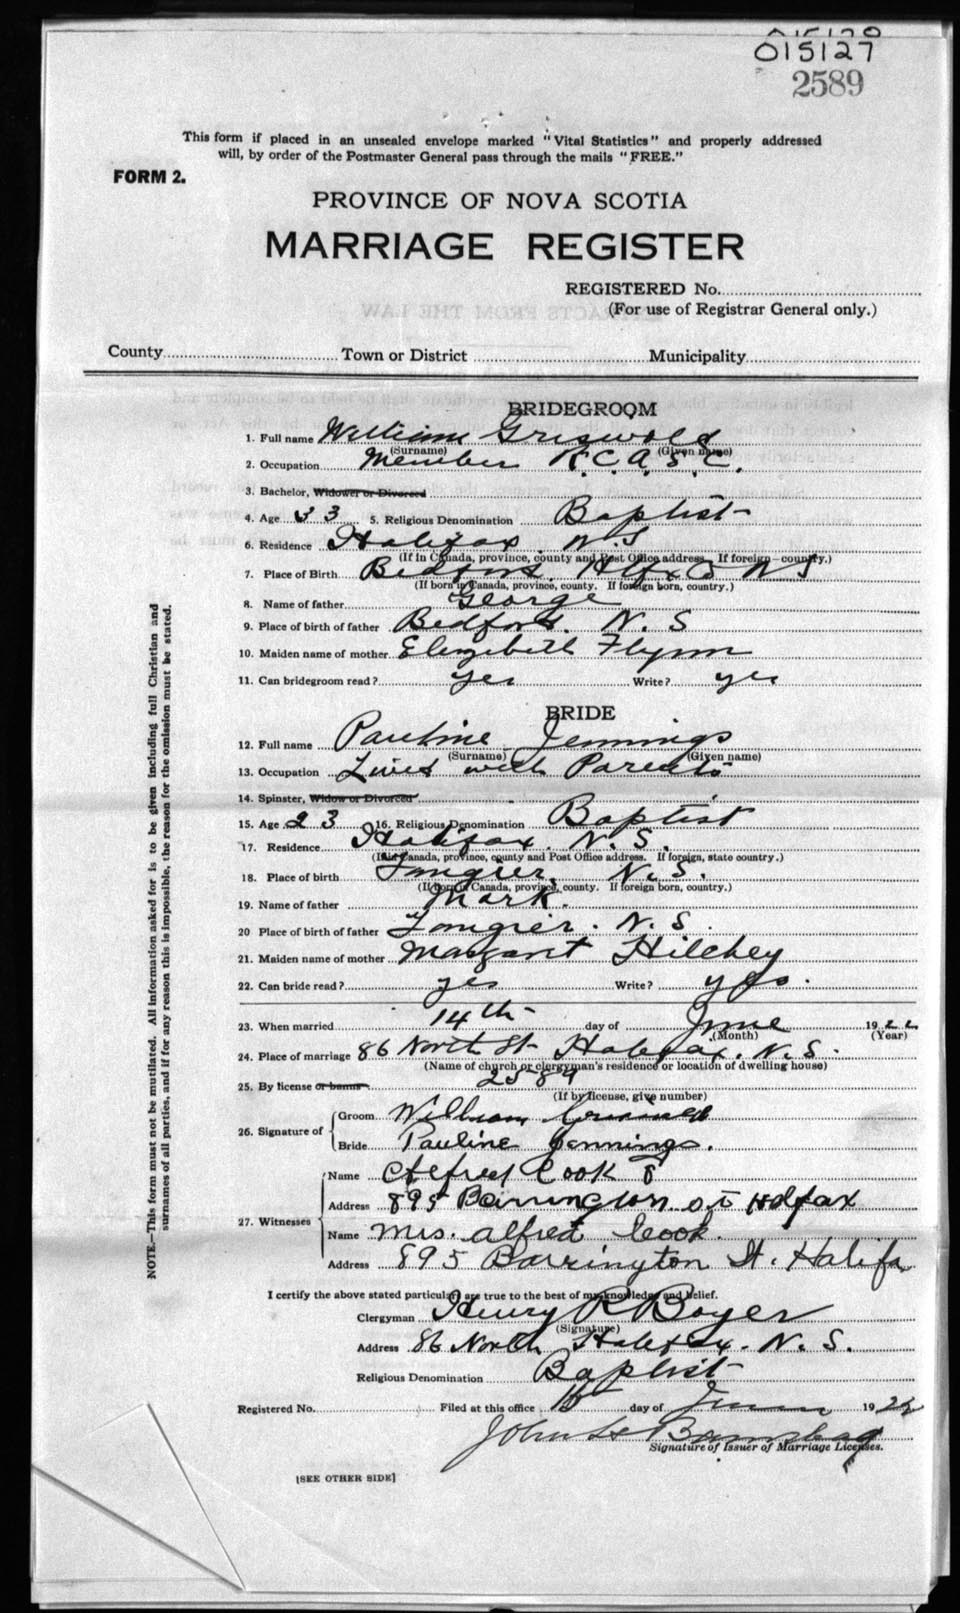 015127
2589
This form if placed in an unsealed envelope marked "Vital Statistics" and properly addressed
will, by order of the Postmaster General pass through the mails "FREE."
FORM 2.
PROVINCE OF NOVA SCOTIA
MARRIAGE REGISTER
REGISTERED No.
(For use of Registrar General only.)
County Town or District Municipality
BRIDEGROOM
1. Full name William Griswold
(Surname) (Given name)
2. Occupation Member R.C.A.S.C.
3. Bachelor, Widower or Divorced
4. Age 33 5. Religious Denomination Baptist
6. Residence Halifax N S
(If in Canada, province, county and Post Office address. If foreign—country.)
7. Place of Birth Bedford. N S
(If born in Canada, province, county. If foreign born, country.)
8. Name of father George
9. Place of birth of father Bedford. N. S
10. Maiden name of mother Elizabeth Flynn
11. Can bridegroom read? yes Write? yes
BRIDE
12. Full name Pauline Jennings
(Surname) (Given name)
13. Occupation Lives with Parents
14. Spinster, Widow or Divorced
15. Age 23 16. Religious Denomination Baptist
17. Residence Halifax N.S.
(If in Canada, province, county and Post Office address. If foreign, state country.)
18. Place of birth Tangier. N.S.
(If born in Canada, province, county. If foreign born, country.)
19. Name of father Mark.
20 Place of birth of father Tangier. N.S.
21. Maiden name of mother Margaret Hilchey
22. Can bride read? yes Write? yes.
23. When married 14th day of June 1922
(Month) (Year)
24. Place of marriage 86 North St Halifax. N.S.
(Name of church or clergyman's residence or location of dwelling house)
25. By license or banns 2589
(If by license, give number)
26. Signature of
Groom William
Bride Pauline Jennings.
27. Witnesses
Name Alfred Cook
Address 895 Barrington St Halifax
Name Mrs. Alfred Cook.
Address 895 Barrington St. Halifa
I certify the above stated particulars are true to the best of my knowledge and belief.
Clergyman Henry R Boyer
(Signature)
Address 86 North Halifax. N. S.
Religious Denomination Baptist
Registered No. Filed at this office day of June 1922
John
Signature of Issuer of Marriage Licenses.
[SEE OTHER SIDE]
NOTE.—This form must not be mutilated. All information asked for is to be given including full Christian and
surnames of all parties, and if for any reason this is impossible, the reason for the omission must be stated.